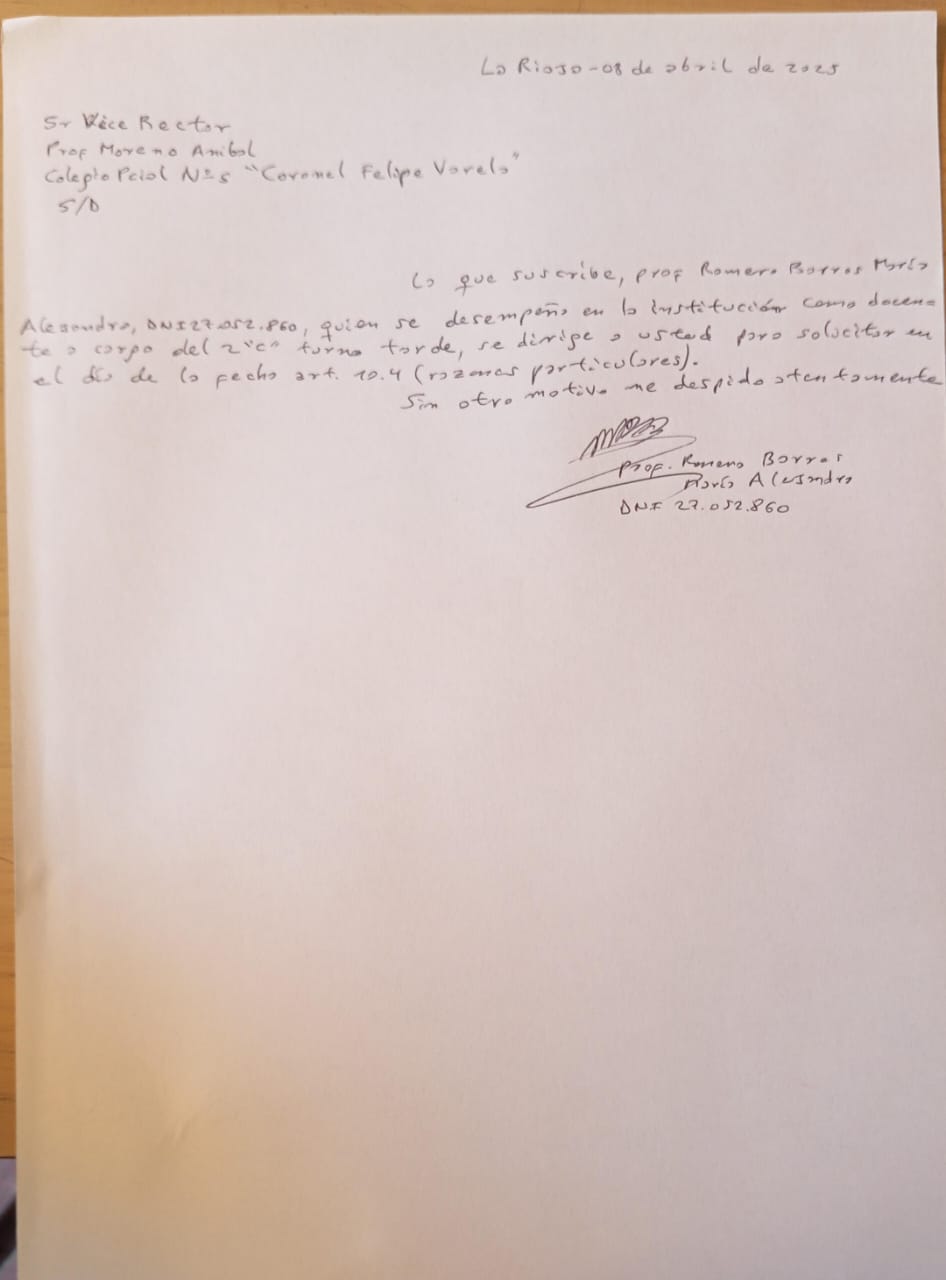 La Rioja - 08 de abril de 2025
Sr Vice Rector
Prof Moreno Anibal
Colegio Pcial N° 5 "Coronel Felipe Varela"
S/D
La que suscribe, prof Romero Barros María
Alejandra, DNI 27.052.860, quien se desempeña en la institución como docen
te a carpo del 2°"C" turno tarde, se dirige a usted para solicitar en
el día de la fecha art. 10.4 (razones particulares).
Sin otro motivo me despido atentamente
Prof. Romero Barros
María Alejandra
DNI 27.052.860